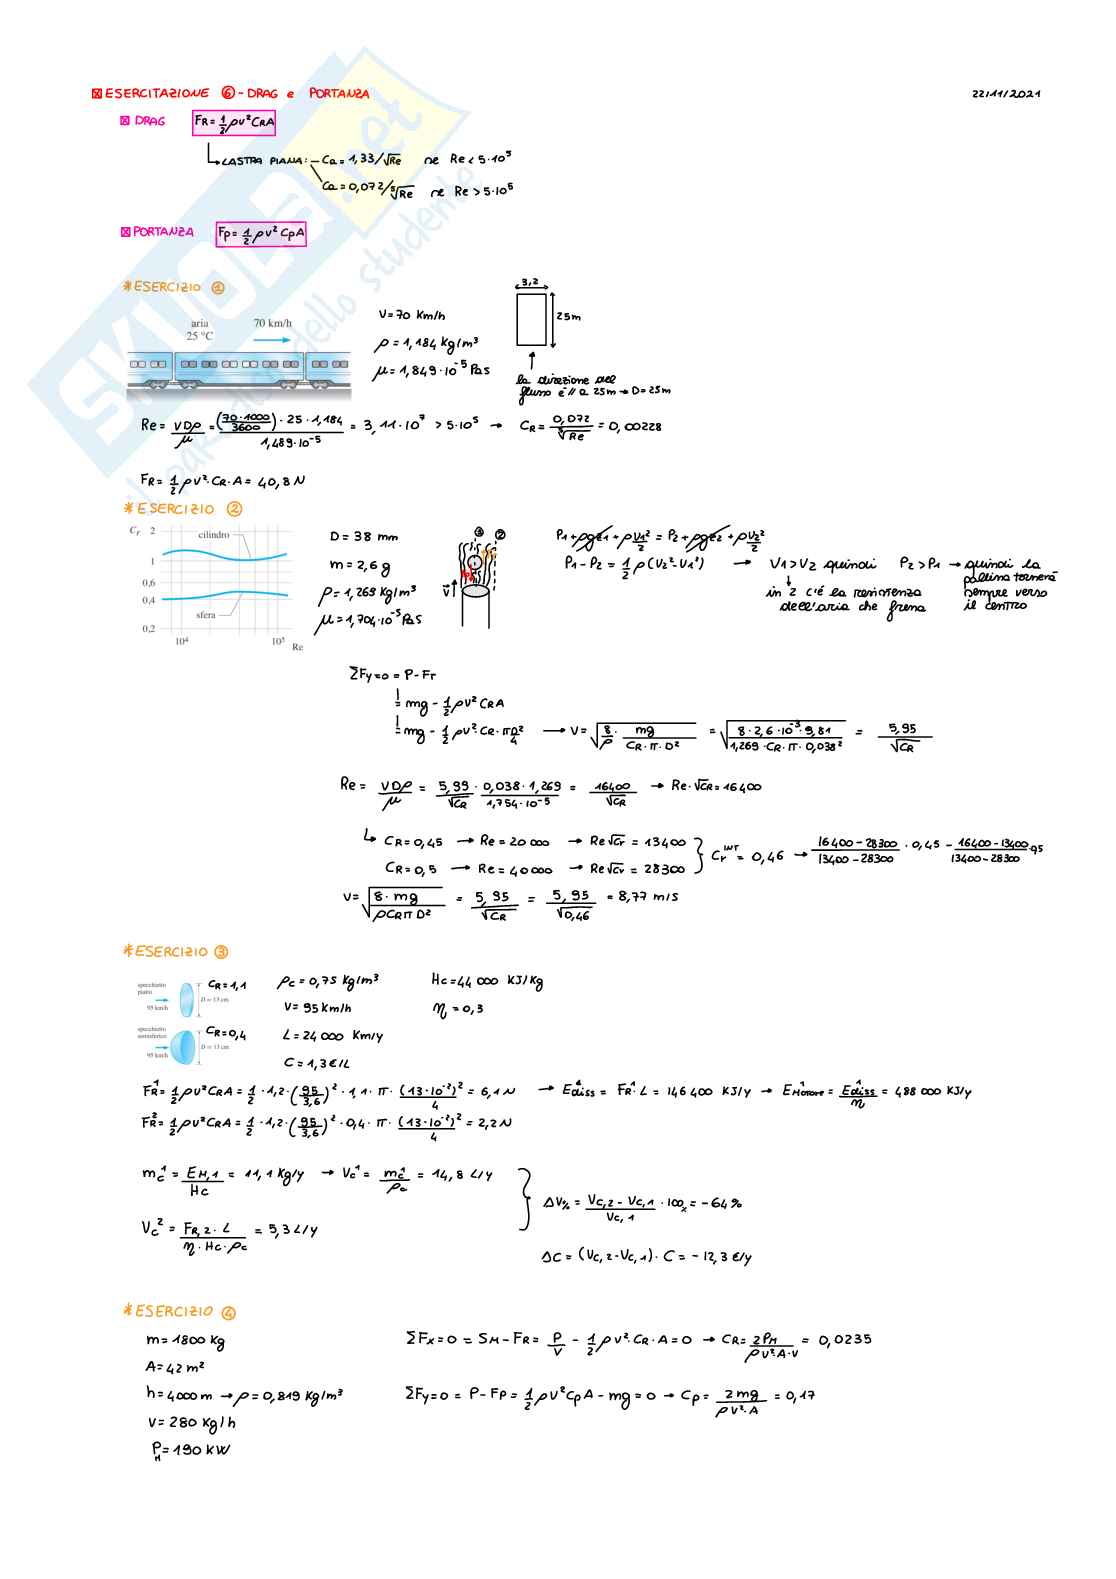 ESERCITAZIONE ⑥ - DRAG e PORTANZA
22/11/2021
DRAG FR = 1/2 ρv² CRA
LASTRA PIANA: - Ca = 1,33/√Re se Re < 5·10⁵
Ca = 0,072/⁵√Re se Re > 5·10⁵
PORTANZA Fp = 1/2 ρv² CpA
* ESERCIZIO ①
aria
25 °C
70 km/h
V = 70 Km/h
ρ = 1,184 Kg/m³
μ = 1,849·10⁻⁵ Pas
3,2
25m
la direzione del
flusso è // a 25m → D = 25m
Re = VDρ/μ = (70·1000/3600)·25·1,184 / 1,489·10⁻⁵ = 3,11·10⁷ > 5·10⁵ → CR = 0,072/⁵√Re = 0,00228
FR = 1/2 ρv²·CR·A = 40,8 N
* ESERCIZIO ②
Cr 2
1
0,6
0,4
0,2
cilindro
sfera
10⁴ 10⁵ Re
D = 38 mm
m = 2,6 g
ρ = 1,269 Kg/m³
μ = 1,704·10⁻⁵ Pas
① ②
V
P1 + ρgz1 + ρV1²/2 = P2 + ρgz2 + ρV2²/2
P1 - P2 = 1/2 ρ(V2² - V1²) → V1 > V2 quindi P2 > P1 → quindi la
pallina tornerà
sempre verso
il centro
in 2 c'è la resistenza
dell'aria che frena
ΣFy = 0 = P - Fr
= mg - 1/2 ρv² CRA
= mg - 1/2 ρv²·CR·πD²/4 → V = √(8/ρ · mg/(CR·π·D²)) = √(8·2,6·10⁻³·9,81 / 1,269·CR·π·0,038²) = 5,95/√CR
Re = VDρ/μ = 5,99/√CR · 0,038·1,269/1,754·10⁻⁵ = 16400/√CR → Re·√CR = 16400
CR = 0,45 → Re = 20 000 → Re√Cr = 13400
CR = 0,5 → Re = 40000 → Re√Cr = 28300
Cr INT = 0,46 → 16400-28300/13400-28300 · 0,45 - 16400-13400/13400-28300 · 0,5
V = √(8·mg/ρCRπD²) = 5,95/√CR = 5,95/√0,46 = 8,77 m/s
* ESERCIZIO ③
specchietto
piatto
95 km/h
D = 13 cm
CR = 1,1
specchietto
semisferico
95 km/h
D = 13 cm
CR = 0,4
ρc = 0,75 Kg/m³
V = 95 Km/h
L = 24 000 Km/y
C = 1,3 €/L
Hc = 44 000 KJ/Kg
η = 0,3
FR¹ = 1/2 ρv² CRA = 1/2 · 1,2 · (95/3,6)² · 1,1 · π · (13·10⁻²)²/4 = 6,1 N → Ediss¹ = FR¹·L = 146 400 KJ/y → EMotore¹ = Ediss¹/η = 488 000 KJ/y
FR² = 1/2 ρv² CRA = 1/2 · 1,2 · (95/3,6)² · 0,4 · π · (13·10⁻²)²/4 = 2,2 N
mc¹ = EM,1/Hc = 11,1 Kg/y → Vc¹ = mc¹/ρc = 14,8 L/y
Vc² = FR,2 · L / η·Hc·ρc = 5,3 L/y
ΔV% = Vc,2 - Vc,1 / Vc,1 · 100 = -64%
ΔC = (Vc,2 - Vc,1)·C = -12,3 €/y
* ESERCIZIO ④
m = 1800 Kg
A = 42 m²
h = 4000 m → ρ = 0,819 Kg/m³
V = 280 Kg/h
PM = 190 KW
ΣFx = 0 = SM - FR = P/V - 1/2 ρv²·CR·A = 0 → CR = 2PM/ρv²·A·V = 0,0235
ΣFy = 0 = P - FP = 1/2 ρv² CpA - mg = 0 → Cp = 2mg/ρv²·A = 0,17
SKUOLA.net
il paradiso dello studente